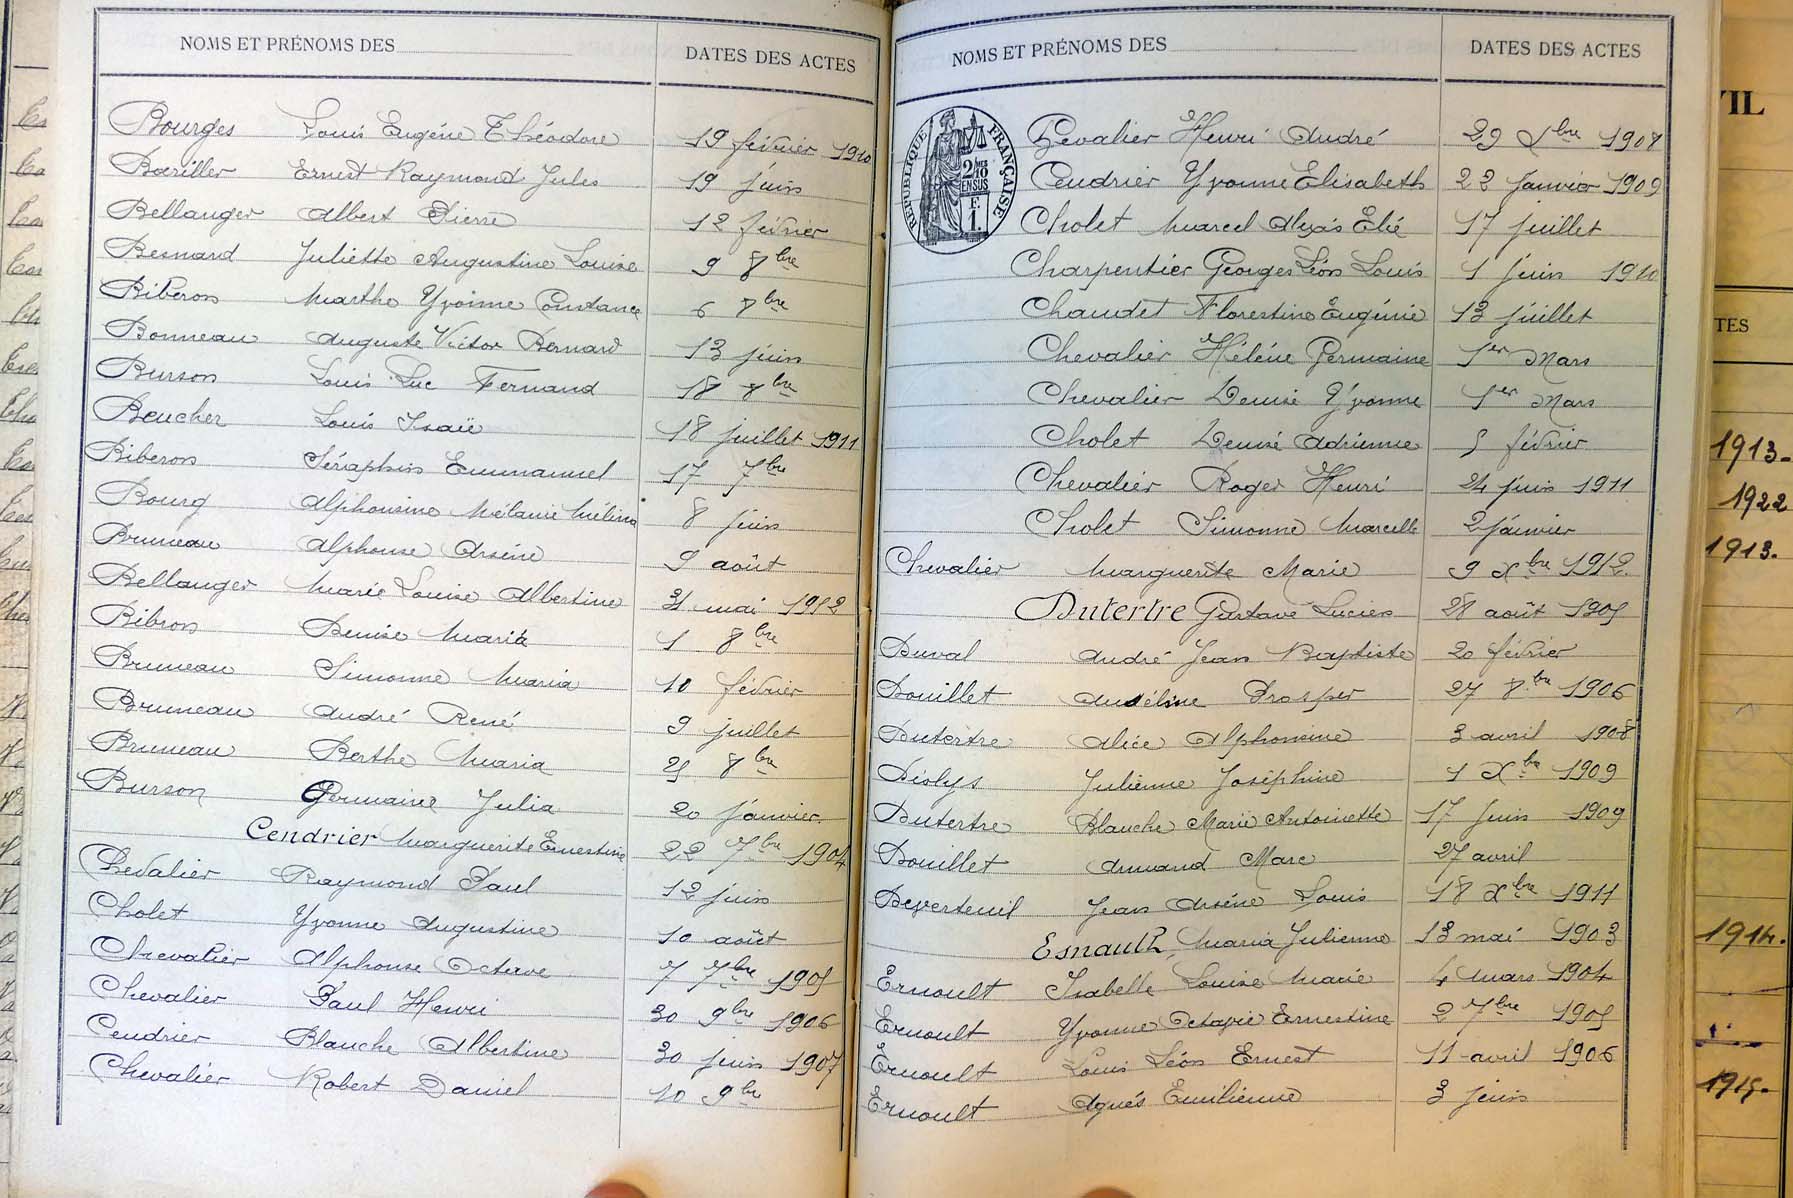 NOMS ET PRÉNOMS DES DATES DES ACTES
Bourges Louis Eugène Théodore 19 février 1910
Bariller Ernest Raymond Jules 19 juin
Bellanger Albert Pierre 12 février
Besnard Juliette Augustine Louise 9 8bre
Biberon Marthe Yvonne Constance 6 8bre
Bonneau Auguste Victor Bernard 13 juin
Burson Louis Luc Fernand 18 8bre
Beucher Louis Isaïe 18 juillet 1911
Biberon Séraphin Emmanuel 17 7bre
Bourg Alphonsine Mélanie Mélina 8 juin
Bruneau Alphonse Arsène 9 août
Bellanger Marie Louise Albertine 31 mai 1912
Bibron Denise Maria 1 8bre
Bruneau Simonne Maria 10 février
Bruneau André René 9 juillet
Bruneau Berthe Maria 25 8bre
Burson Germaine Julia 20 janvier
Cendrier Marguerite Ernestine 22 7bre 1904
Chevalier Raymond Paul 12 juin
Cholet Yvonne Augustine 10 août
Chevalier Alphonse Octave 7 7bre 1905
Chevalier Paul Henri 30 9bre 1906
Cendrier Blanche Albertine 30 juin 1907
Chevalier Robert Daniel 10 9bre
NOMS ET PRÉNOMS DES DATES DES ACTES
RÉPUBLIQUE FRANÇAISE
2/10 MES
EN SUS
F.
1.
Chevalier Henri André 29 Xbre 1908
Cendrier Yvonne Elisabeth 22 janvier 1909
Cholet Marcel Alexis Elié 17 juillet
Charpentier Georges Léon Louis 1 juin 1910
Chaudet Florestine Eugénie 13 juillet
Chevalier Hélène Germaine 1er Mars
Chevalier Denise Yvonne 1er Mars
Cholet Denise Adrienne 5 février
Chevalier Roger Henri 24 juin 1911
Cholet Simonne Marcelle 2 janvier
Chevalier Marguerite Marie 9 Xbre 1912
Dutertre Gustave Lucien 28 août 1905
Duval André Jean Baptiste 20 février
Douillet Andéline Prosper 27 8bre 1906
Dutertre Alice Alphonsine 3 avril 1908
Deslys Julienne Joséphine 1 Xbre 1909
Dutertre Blanche Marie Antoinette 17 juin 1909
Douillet Armand Marc 27 avril
Deverteuil Jean Arsène Louis 18 Xbre 1911
Esnault Maria Julienne 13 mai 1903
Ernoult Isabelle Louise Marie 4 mars 1904
Ernoult Yvonne Octavie Ernestine 2 7bre 1905
Ernoult Louis Léon Ernest 11 avril 1906
Ernoult Agnés Emilienne 3 juin
VIL
TES
1913.
1922
1913.
1914.
1915.